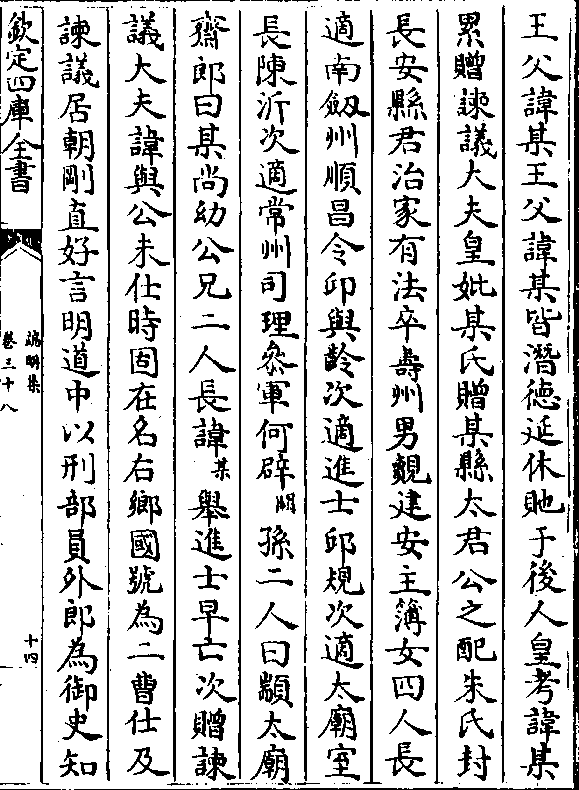 王父諱某王父諱某皆潛徳延休貤于後人皇考諱某
累贈諫議大夫皇妣某氏贈某縣太君公之配朱氏封
長安縣君治家有法卒壽州男覿建安主簿女四人長
適南劔州順昌令邱與齡次適進士邱規次適太廟室
長陳沂次適常州司理叅軍何辟非孫二人曰顓太廟
齋郎曰某尚幼公兄二人長諱某舉進士早亡次贈諫
議大夫諱與公未仕時固在名右鄉國號為二曹仕及
諫議居朝剛直好言明道中以刑部員外郎為御史知
欽定四庫全書
端明集
卷三十八
十四